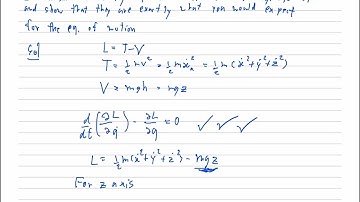 and show that they are exactly what you would expect
for the eq. of motion
L = T-V
T = 1/2 mv² = 1/2 m ẋ² = 1/2 m (ẋ²+ẏ²+ż²)
V = mgh = mgz
d/dt (∂L/∂q̇) - ∂L/∂q = 0 ✓ ✓ ✓
L = 1/2 m(ẋ²+ẏ²+ż²) - mgz
For z axis